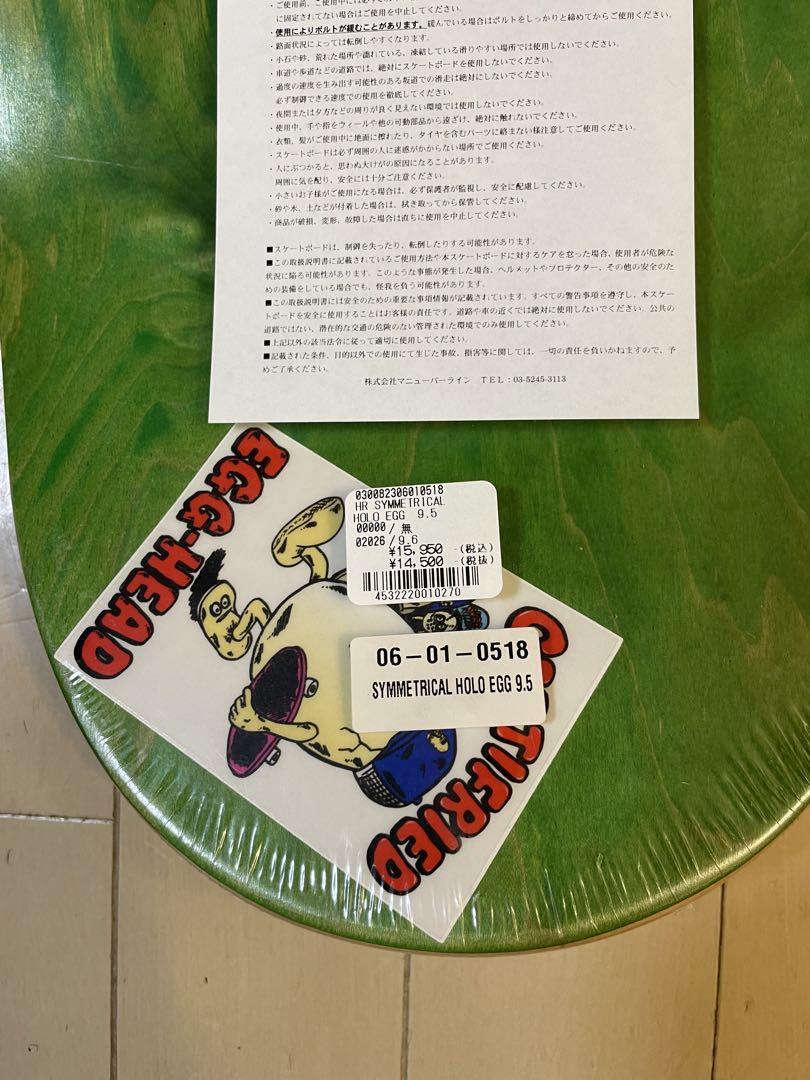 ・ご使用前、ご使用中には必ず
に固定されてない場合はご使用を中止してください。
・使用によりボルトが緩むことがあります。緩んでいる場合はボルトをしっかりと締めてからご使用ください。
・路面状況によっては転倒しやすくなります。
・小石や砂、荒れた場所や濡れている、凍結している滑りやすい場所では使用しないでください。
・車道や歩道などの道路では、絶対にスケートボードを使用しないでください。
・過度の速度を生み出す可能性のある坂道での滑走は絶対にしないでください。
必ず制御できる速度での使用を徹底してください。
・夜間または夕方などの周りが良く見えない環境では使用しないでください。
・使用中、手や指をウィールや他の可動部品から遠ざけ、絶対に触れないでください。
・衣類、髪がご使用中に地面に擦れたり、タイヤを含むパーツに絡まない様注意してご使用ください。
・スケートボードは必ず周囲の人に迷惑がかからない場所でご使用ください。
・人にぶつかると、思わぬ大けがの原因になることがあります。
周囲に気を配り、安全には十分ご注意ください。
・小さいお子様がご使用になる場合は、必ず保護者が監視し、安全に配慮してください。
・砂や水、土などが付着した場合は、拭き取ってから保管してください。
・商品が破損、変形、故障した場合は直ちに使用を中止してください。
■スケートボードは、制御を失ったり、転倒したりする可能性があります。
■この取扱説明書に記載されているご使用方法や本スケートボードに対するケアを怠った場合、使用者が危険な
状況に陥る可能性があります。このような事態が発生した場合、ヘルメットやプロテクター、その他の安全のた
めの装備をしている場合でも、怪我を負う可能性があります。
■この取扱説明書には安全のための重要な事項情報が記載されています。すべての警告事項を遵守し、本スケー
トボードを安全に使用することはお客様の責任です。道路や車の近くでは絶対に使用しないでください。公共の
道路ではない、潜在的な交通の危険のない管理された環境でのみ使用してください。
■上記以外の該当法令に従って適切に使用してください。
■記載された条件、目的以外での使用にて生じた事故、損害等に関しては、一切の責任を負いかねますので、予
めご了承ください。
株式会社マニューバーライン TEL:03-5245-3113
EGG-HEAD
030082306010518
HR SYMMETRICAL
HOLO EGG 9.5
00000/無
02026/9.6
¥15,950 -(税込)
¥14,500 -(税抜)
4532220010270
06-01-0518
SYMMETRICAL HOLO EGG 9.5
TIFRIED